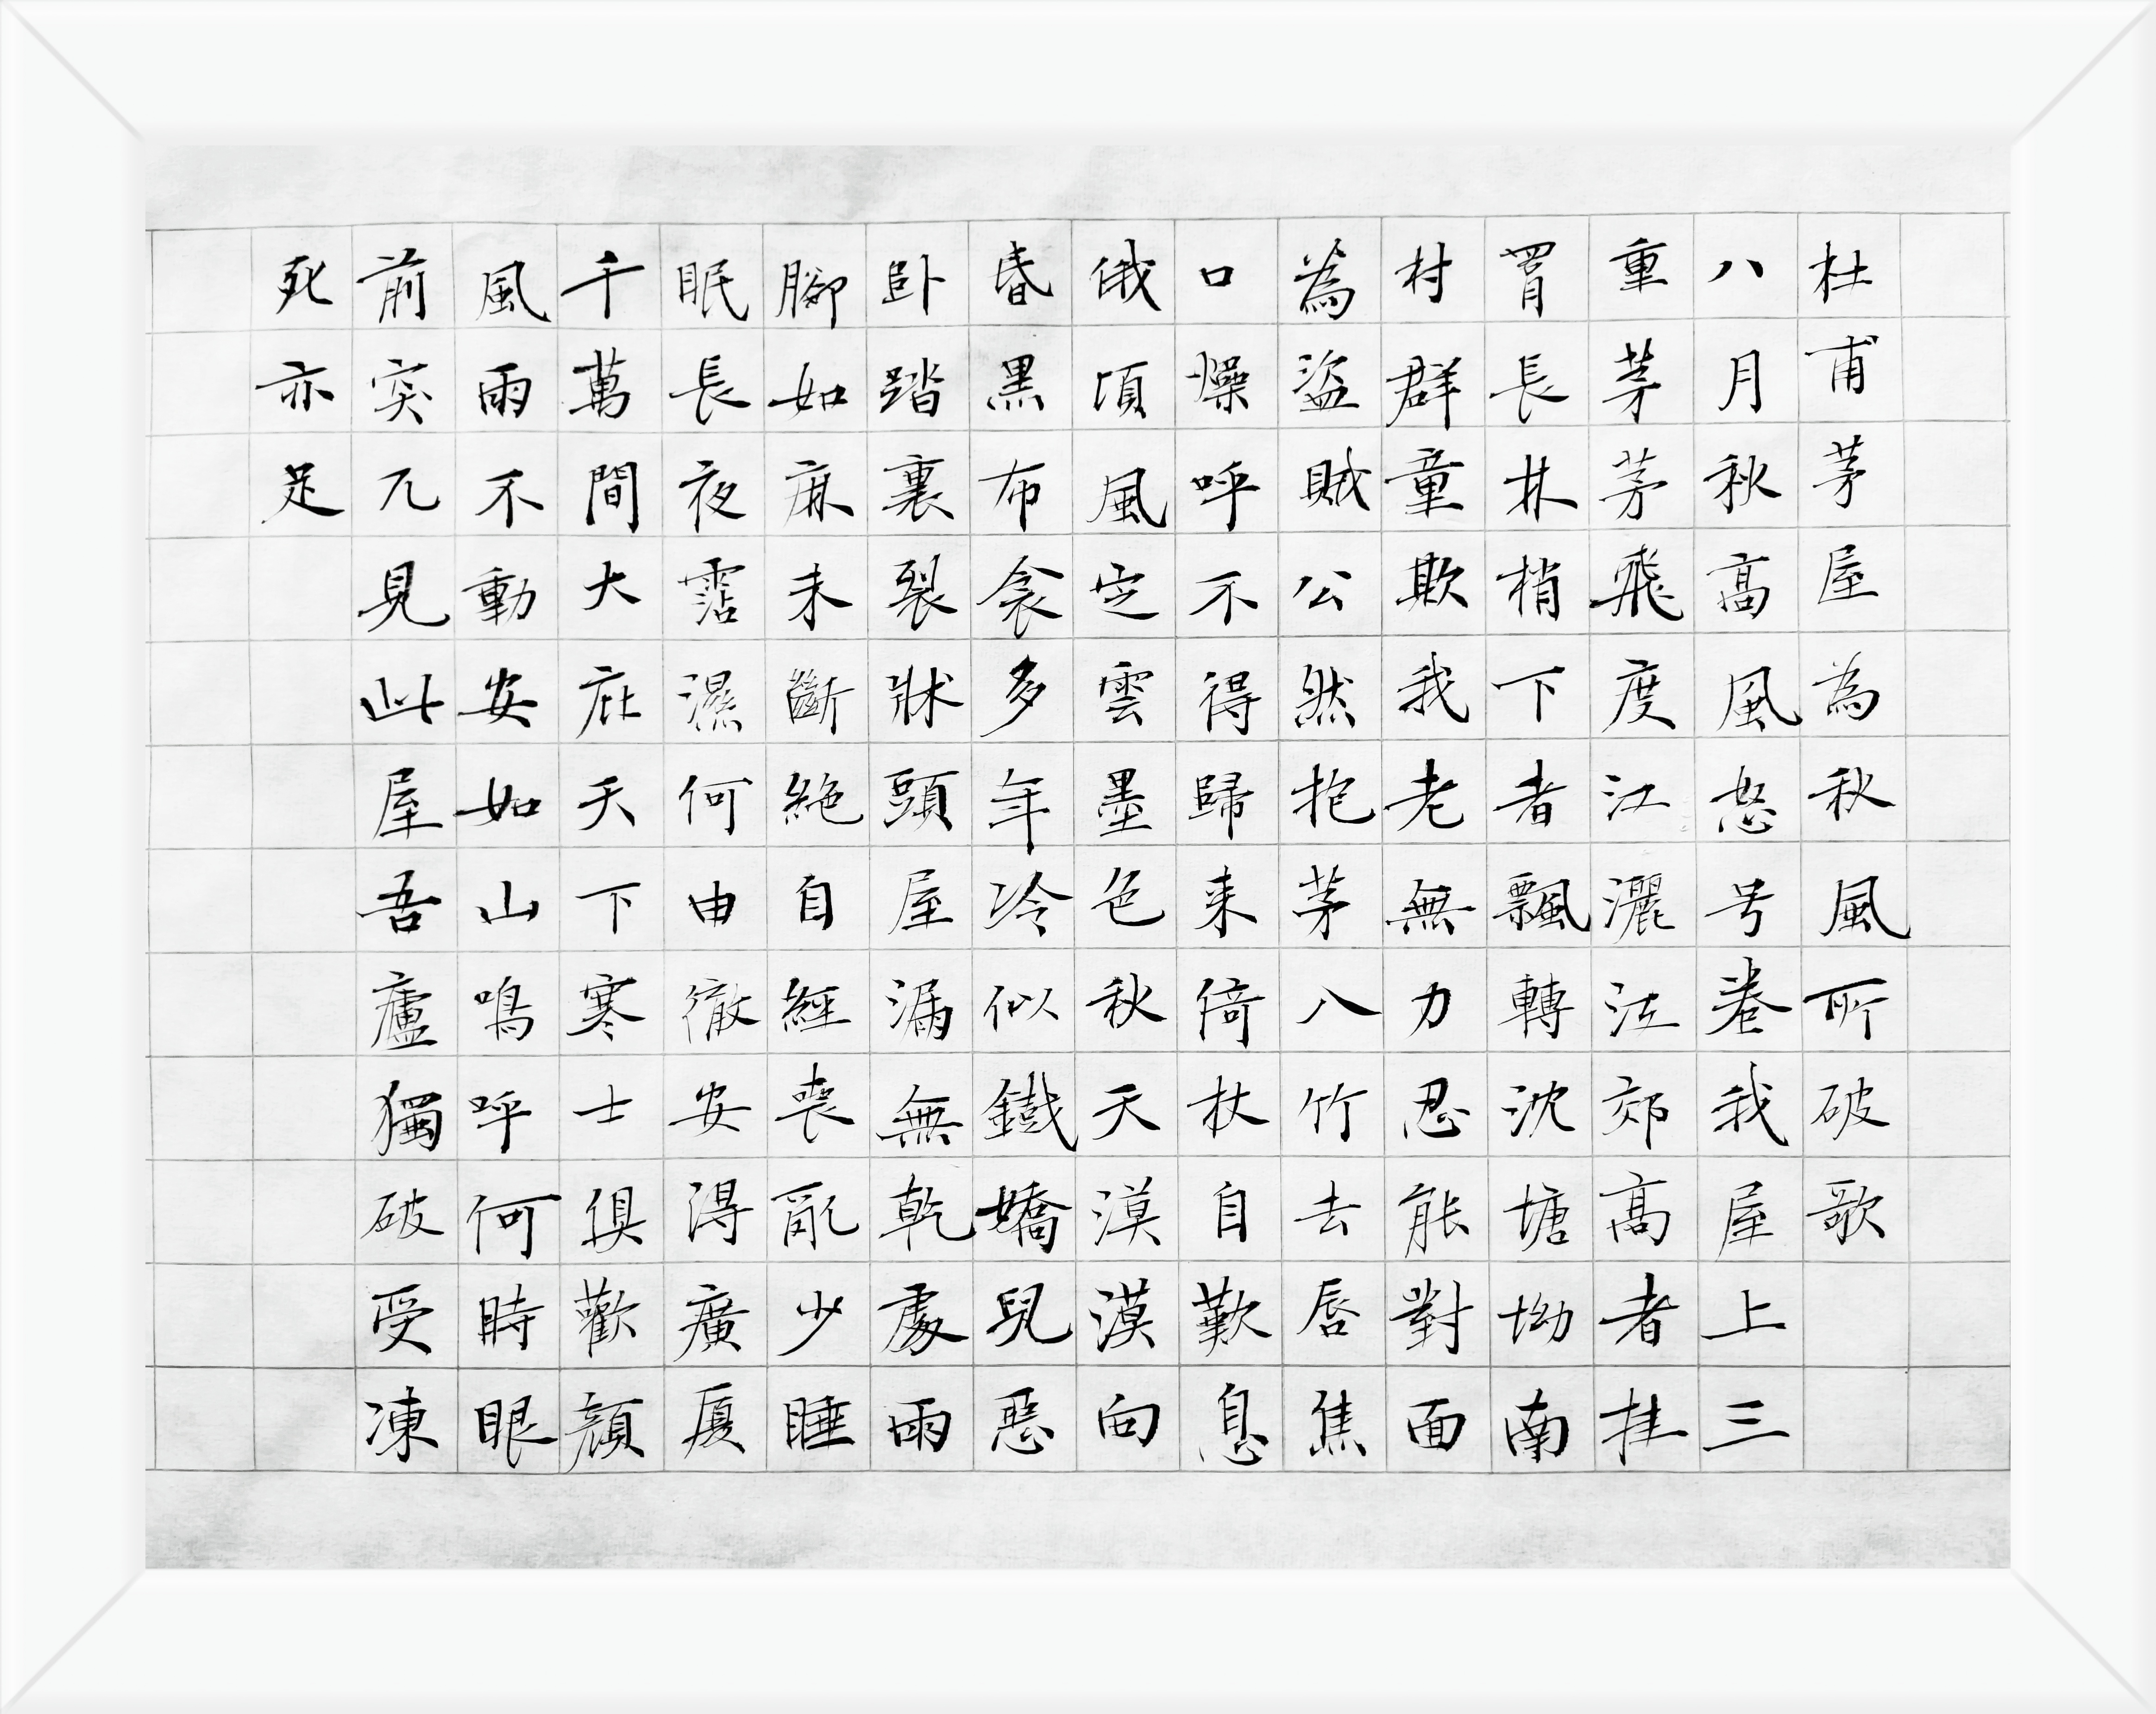 杜甫茅屋為秋風所破歌
八月秋高風怒号卷我屋上三
重茅茅飛度江灑江郊高者挂
罥長林梢下者飄轉沈塘坳南
村群童欺我老無力忍能對面
為盜賊公然抱茅八竹去唇焦
口燥呼不得歸来倚杖自歎息
俄頃風定雲墨色秋天漠漠向
昏黑布衾多年冷似鐵嬌兒惡
卧踏裏裂牀頭屋漏無乾處雨
腳如麻未斷絶自經喪亂少睡
眠長夜霑濕何由徹安得廣厦
千萬間大庇天下寒士俱歡顔
風雨不動安如山嗚呼何時眼
前突兀見此屋吾廬獨破受凍
死亦足